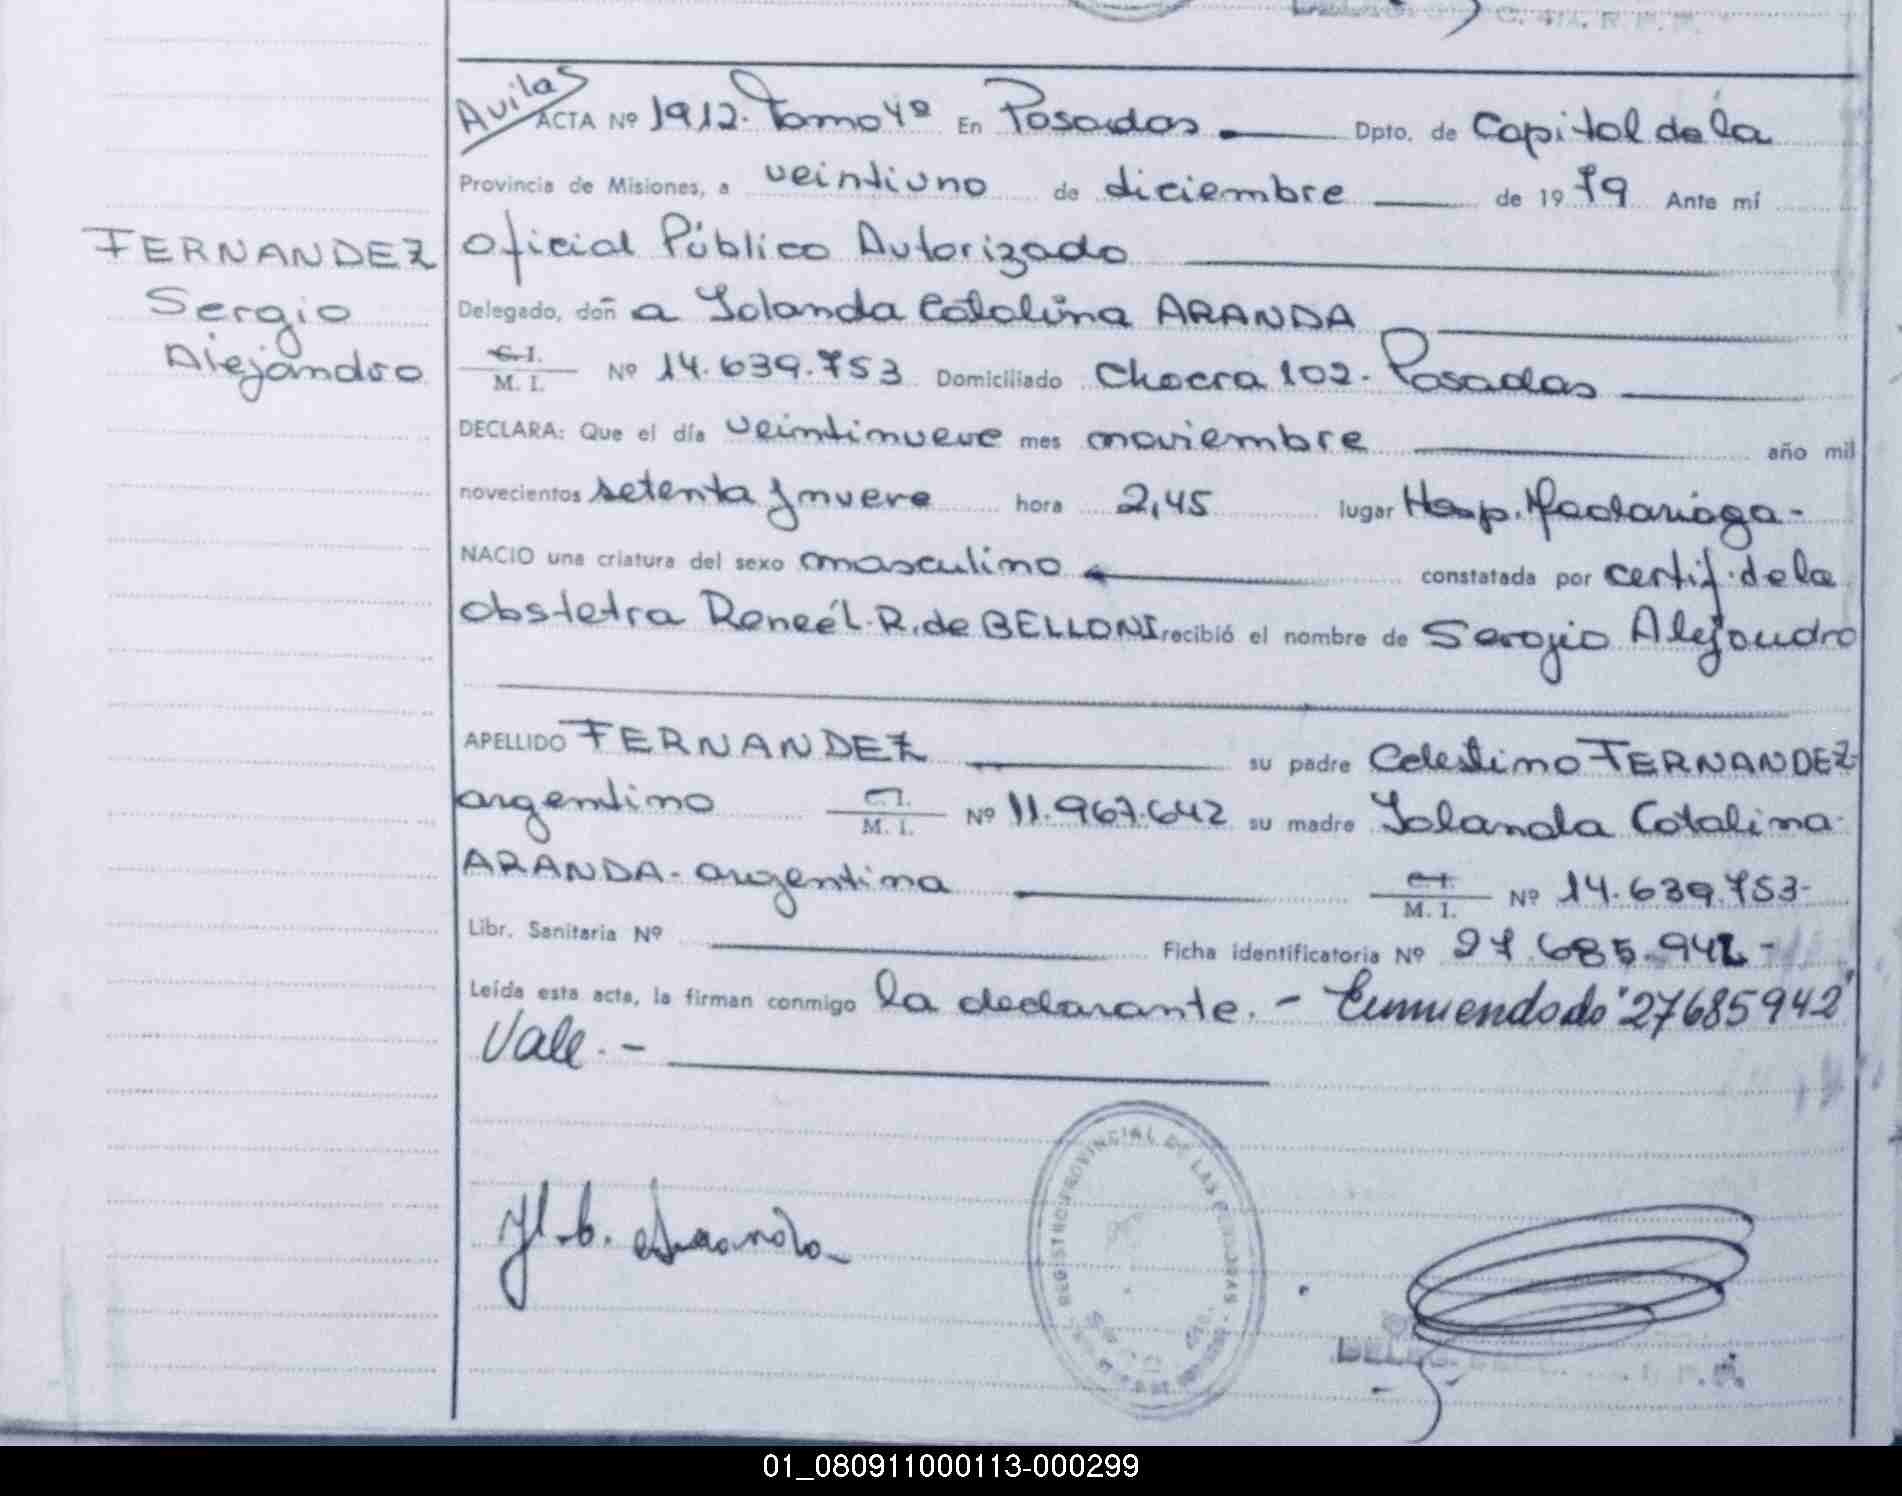 C. 4ta. R. P. P.
Avilas
ACTA Nº 1912. Tomo 4º En Posadas Dpto. de Capital de la
Provincia de Misiones, a veintiuno de diciembre de 1979 Ante mí
FERNANDEZ
Sergio
Alejandro
Oficial Público Autorizado
Delegado, doñ a Yolanda Catalina ARANDA
C.I.
M. I. Nº 14.639.753 Domiciliado Chacra 102. Posadas
DECLARA: Que el día veintinueve mes noviembre año mil
novecientos setenta y nueve hora 2,45 lugar Hosp. Madariaga-
NACIO una criatura del sexo masculino constatada por certif. de la
obstetra Reneé L. R. de BELLONI recibió el nombre de Sergio Alejandro
APELLIDO FERNANDEZ su padre Celestino FERNANDEZ-
argentino C.I.
M. I. Nº 11.967.642 su madre Yolanda Catalina
ARANDA- argentina C.I.
M. I. Nº 14.639.753-
Libr. Sanitaria Nº Ficha identificatoria Nº 27.685.942-
Leída esta acta, la firman conmigo la declarante. - Enmendado "27685942"
Vale. -
Y. C. Aranda
REGISTRO PROVINCIAL DE LAS PERSONAS
01_080911000113-000299